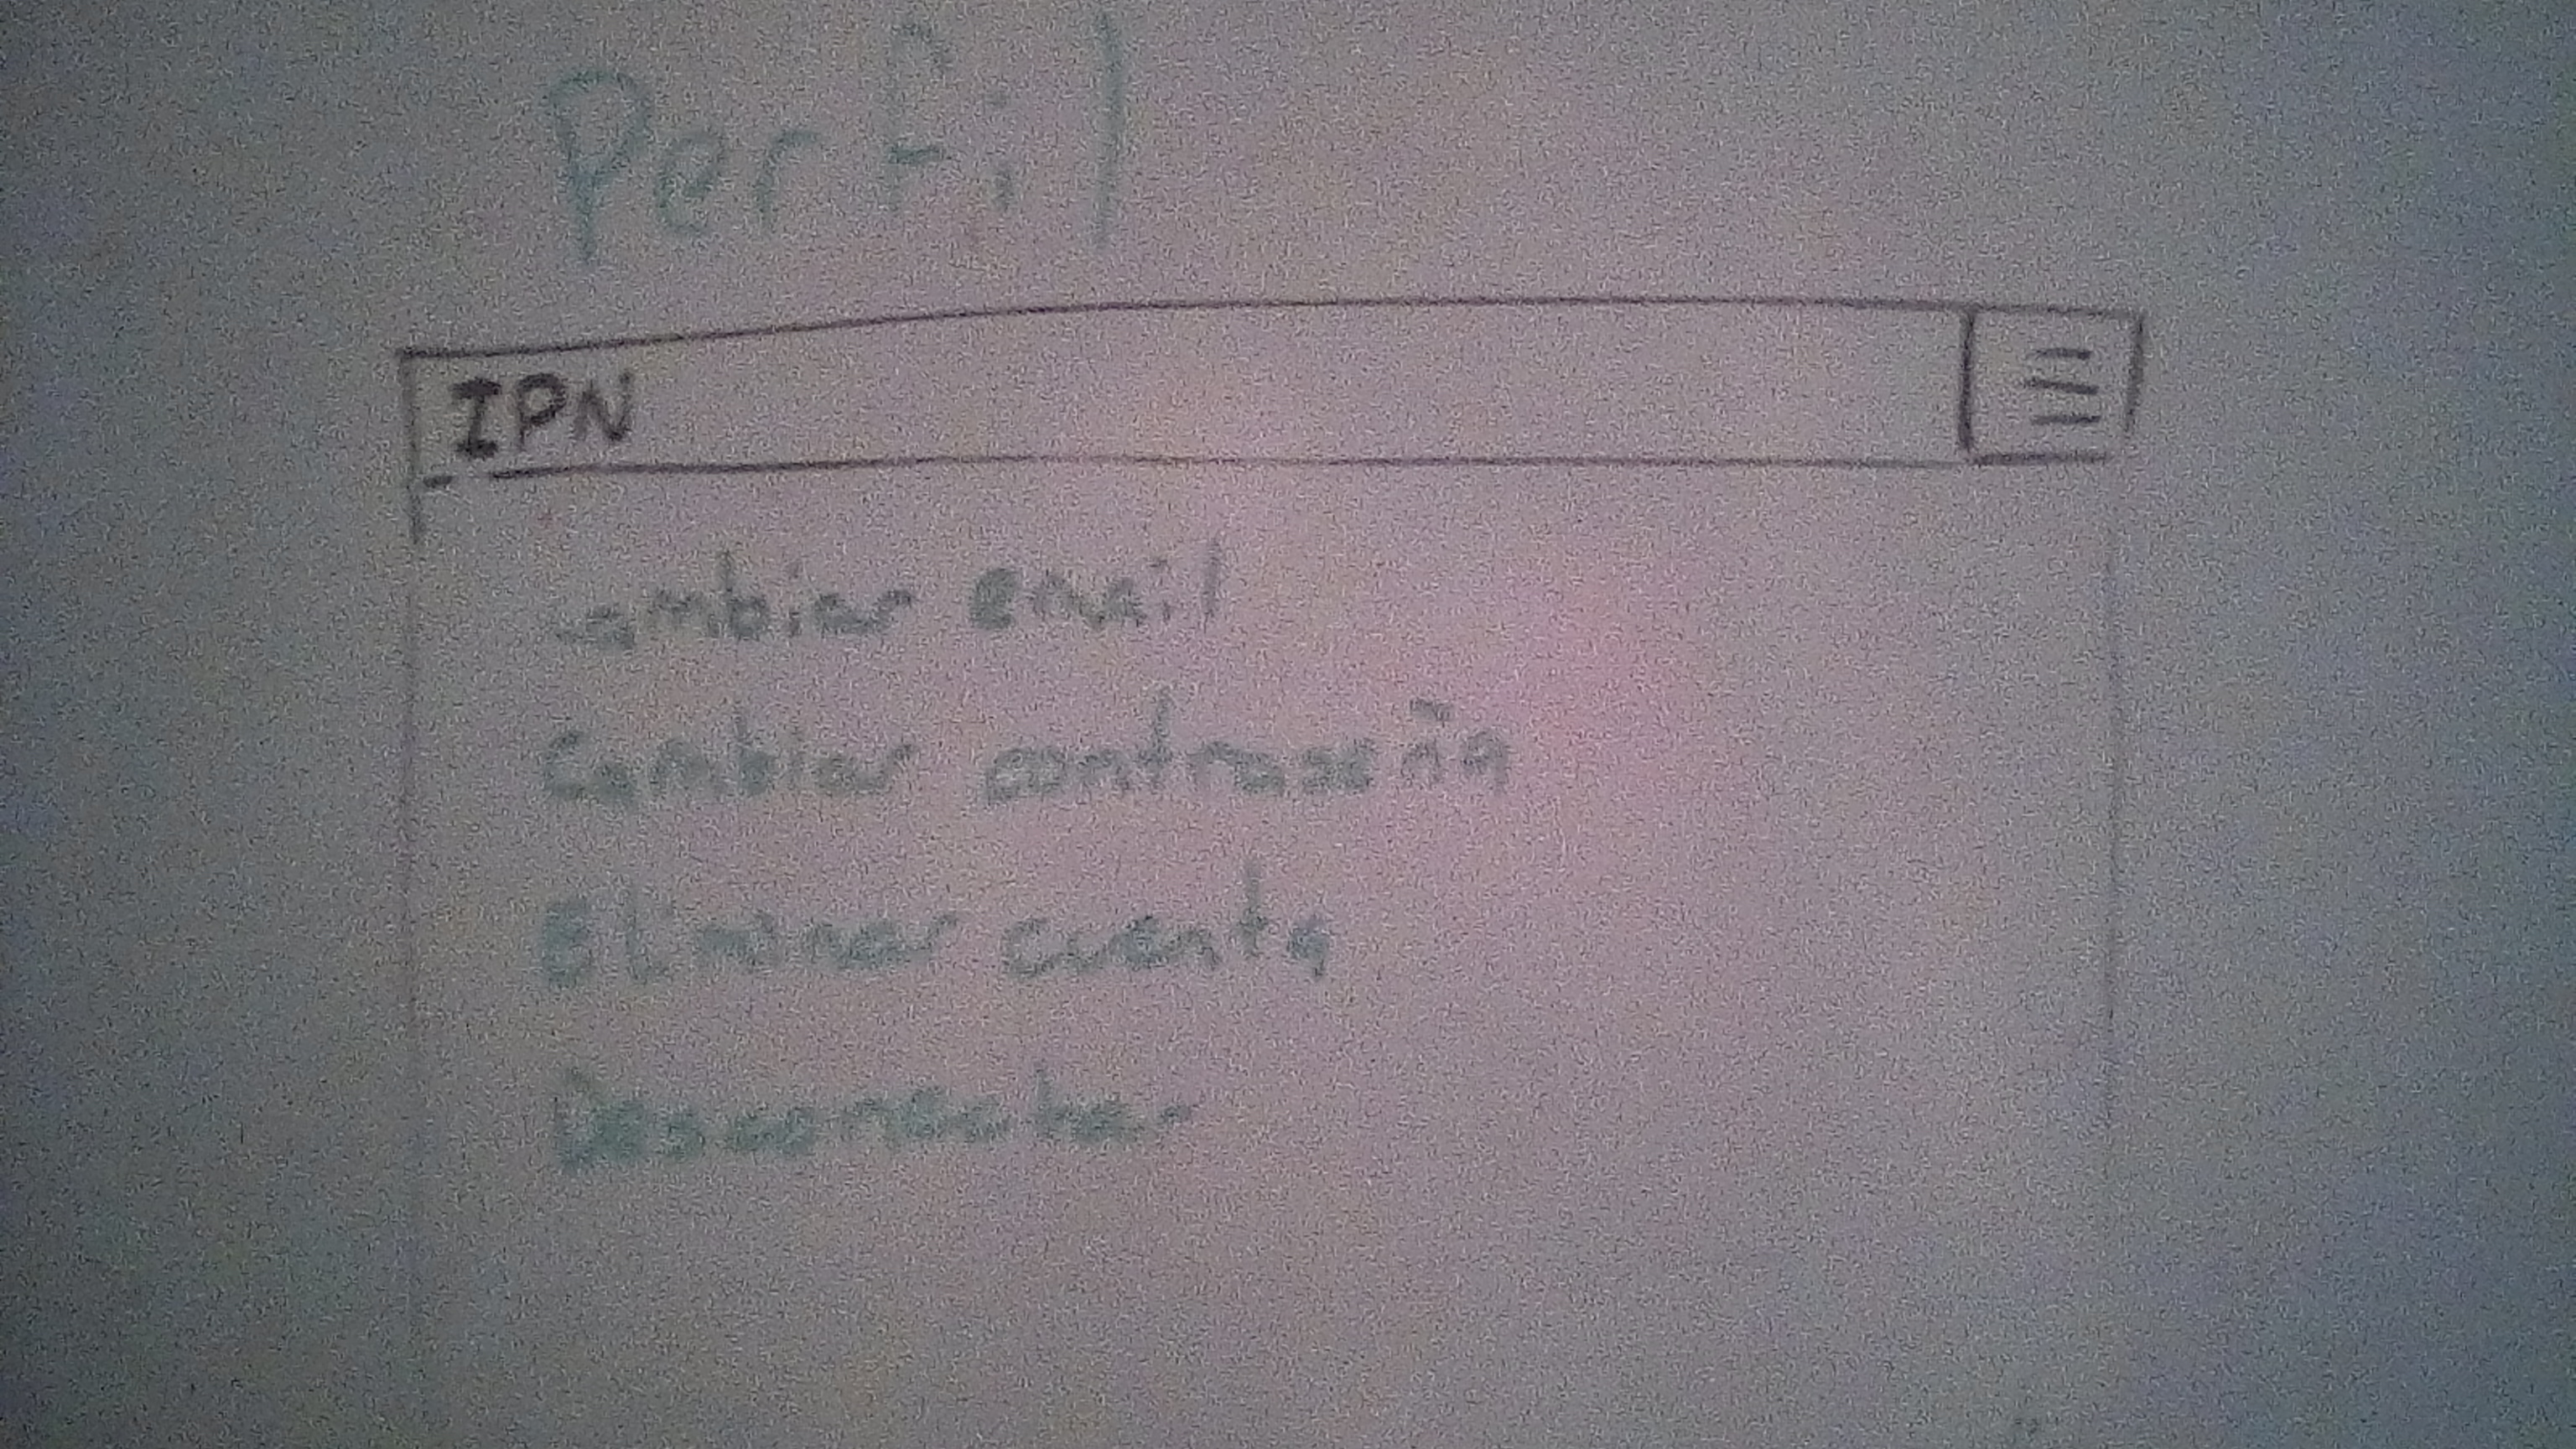 Perfil
IPN
Cambiar email
Cambiar contraseña
Eliminar cuenta
Desconectar